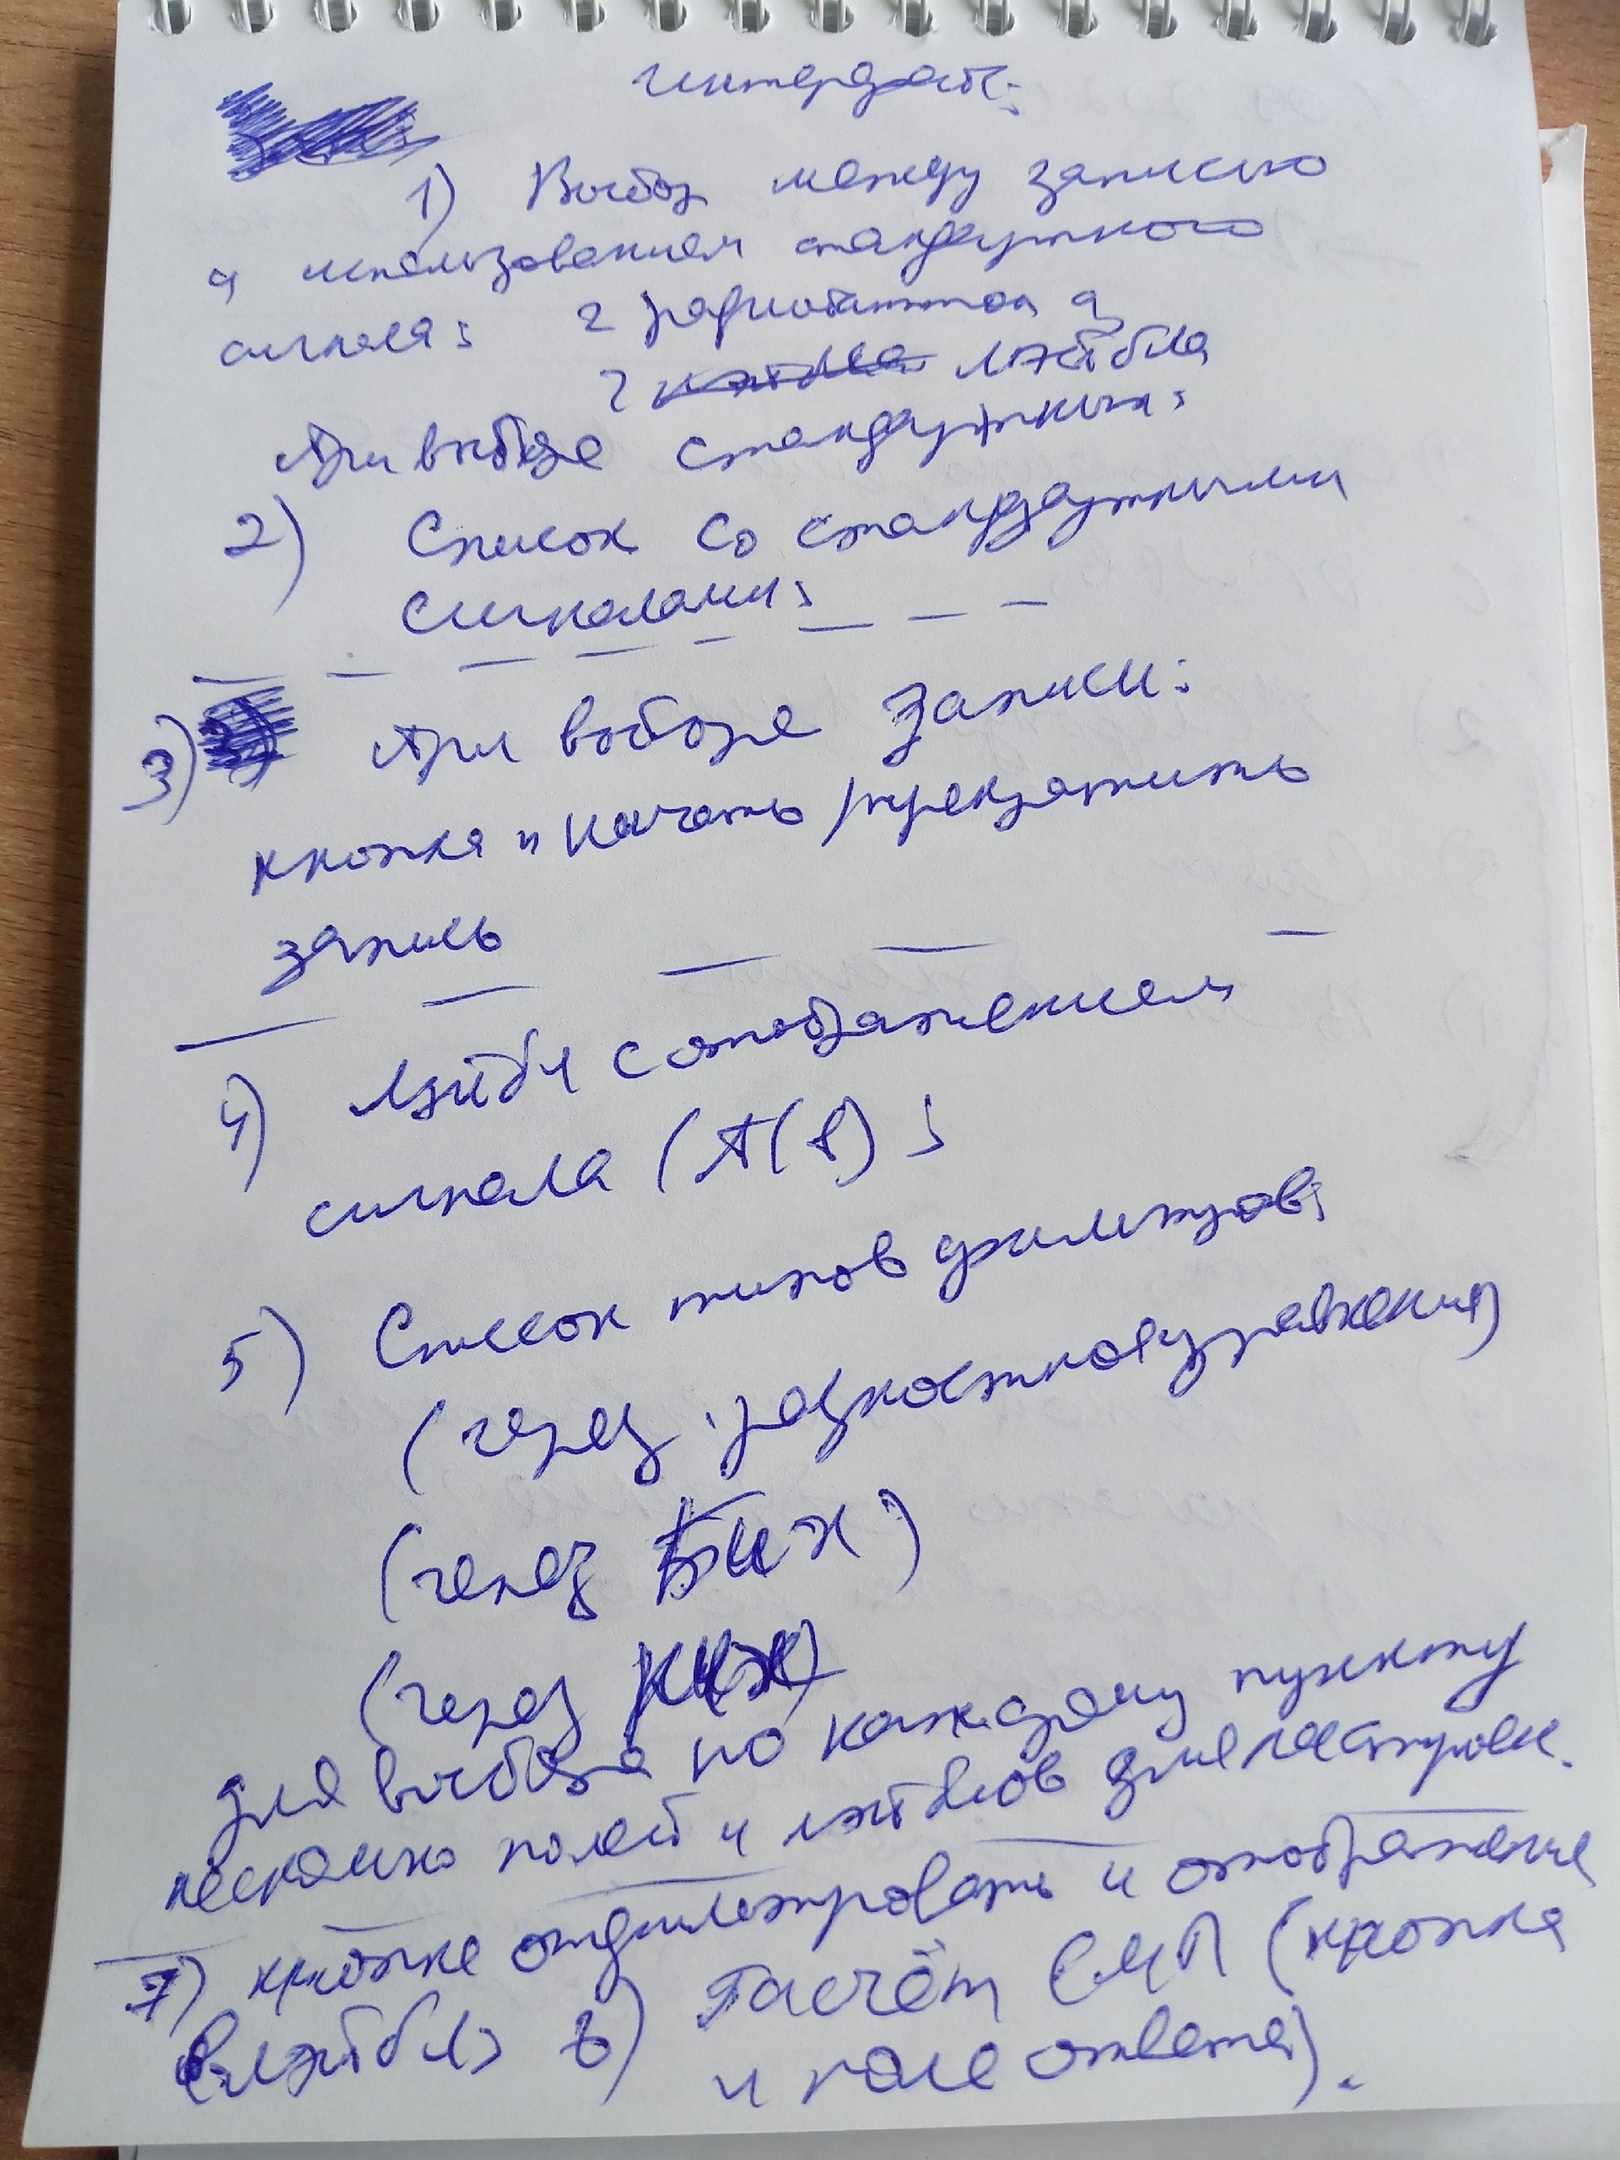 интерфейс:
1) Выбор между записью
и использованием стандартного
сигнала: 2 радиобаттон и
2 лэйбла
При выборе стандартных:
2) Список со стандартными
сигналами;
3) При выборе записи:
кнопка и начать/прекратить
запись
4) Лэйбл с отображением
сигнала (A(t);
5) Список типов фильтров;
(через разностное уравнения)
(через БИХ)
(через КИХ)
для выбора по каждому пункту
несколько полей и лэйблов для настройк.
7) кнопка отфильтровать и отображение
в лэйбл; 8) Расчёт СМП (кнопка
и поле ответа).